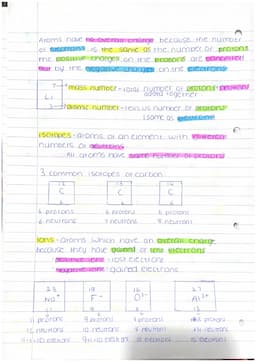 Atoms have no overall charge because the number
of electrons is the same as the number of protons
The positive charges on the protons are cancelled
out by the negative charges on the electrons
7 → mass number - total number of protons + neutrons
Li added together
3 → atomic number - tells us number of protons
is same as electrons
Isotopes - atoms of an element with different
numbers of neutrons
All atoms have same number of protons
3 common isotopes of carbon
12 13 14
C C C
6 6 6
6 protons 6 protons 6 protons
6 neutrons 7 neutrons 8 neutrons
Ions - atoms which have an overall charge
because they have gained or lost electrons
: lost electrons
: gained electrons
23 19 16 27
Na⁺ F⁻ O²⁻ Al³⁺
11 9 8 13
11 protons 9 protons 8 protons protons
12 neutrons 10 neutrons 8 neutrons 14 neutrons